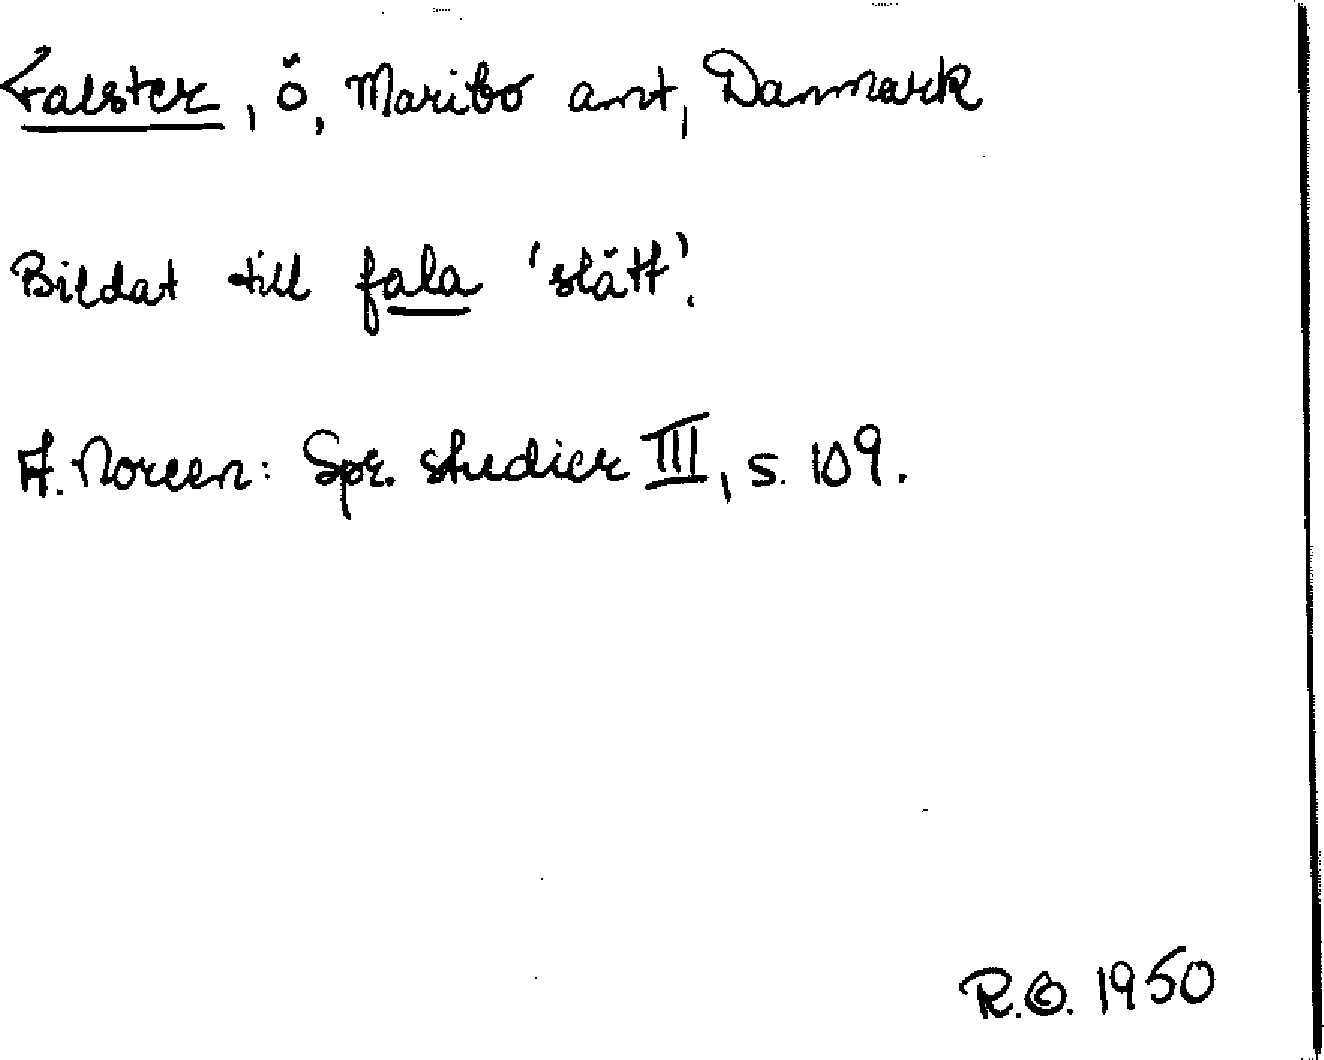 Falster, ö, Maribo amt, Danmark
Bildat till fala 'slätt'.
A. Noreen: Spr. studier III, s. 109.
R.O. 1950